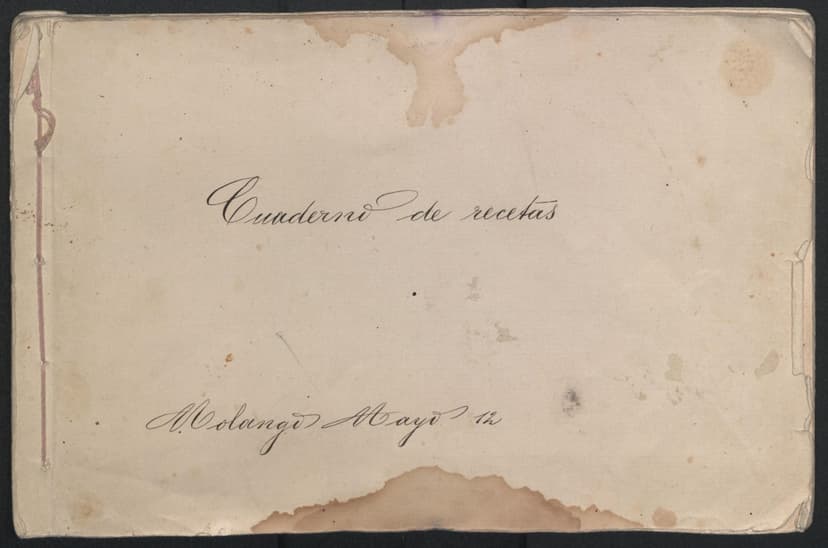 Cuaderno de recetas
Molango Mayo 12